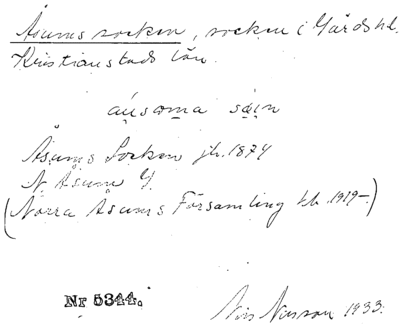 Åsums socken, socken i Gärds hd.
Kristianstads län.
áu̯soma sái̯n
Åsums Socken jb. 1874
N. Åsum Y.
(Norra Åsums Församling kb. 1919-)
Nr 5344.
Nils Nilsson 1933.